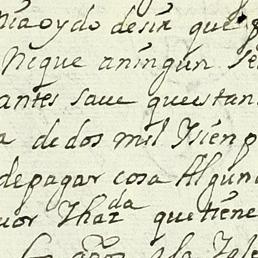 oydo desir que
Nique aningun
antes save questan
de dos mil Y sien p
depagar cosa Algun
Y haz da que tiene